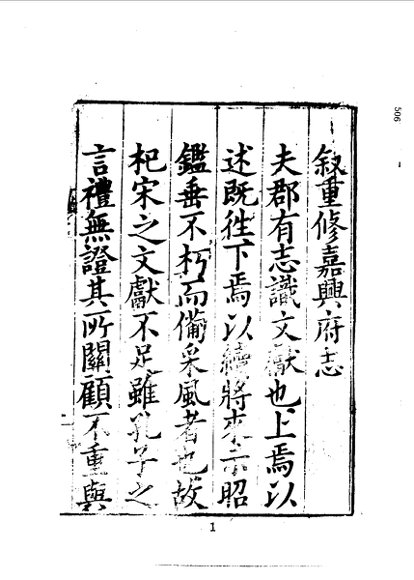 叙重修嘉興府志
夫郡有志識文獻也上焉以
述既徃下焉以續將來示昭
鑑垂不朽而備采風者也故
杞宋之文獻不足雖孔子之
言禮無證其所關顧不重與
506
1